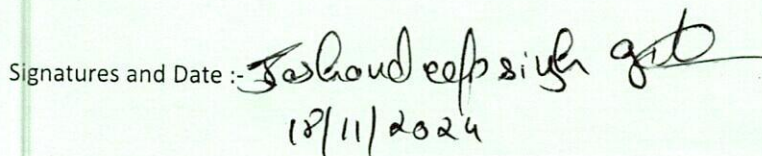 Signatures and Date :- Jashandeep singh gill
18/11/2024